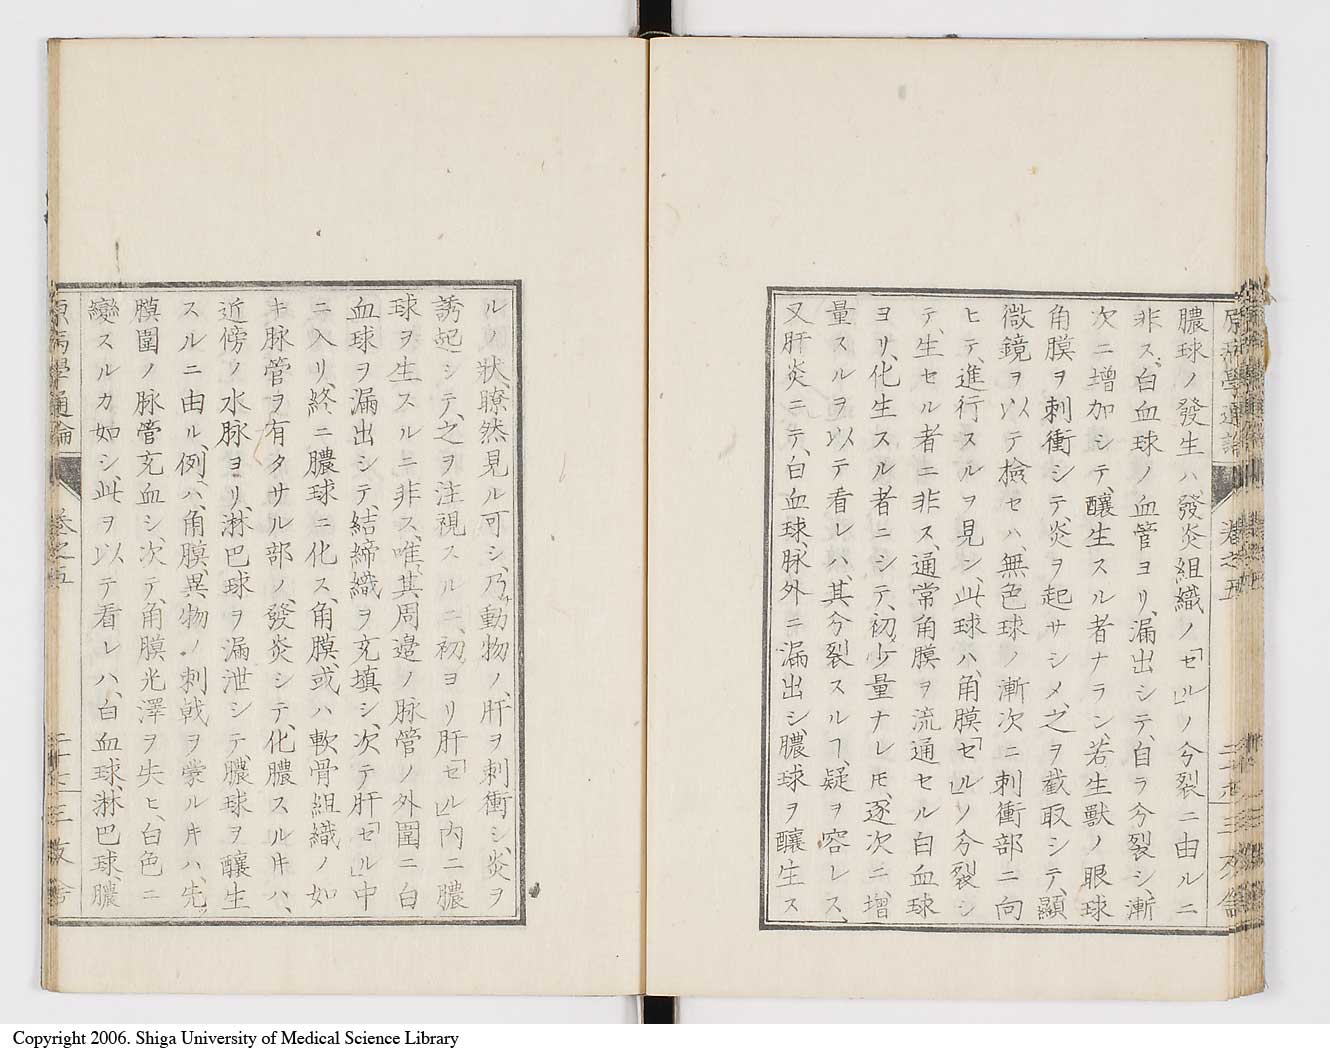 原病學通論 卷之五 二十七 三友舎
膿球ノ發生ハ發炎組織ノ「セル」ノ分裂ニ由ルニ
非ス、白血球ノ血管ヨリ、漏出シテ、自ラ分裂シ、漸
次ニ增加シテ、釀生スル者ナラン、若生獸ノ眼球
角膜ヲ刺衝シテ、炎ヲ起サシメ、之ヲ截取シテ、顯
微鏡ヲ以テ檢セハ、無色球ノ漸次ニ刺衝部ニ向
ヒテ、進行スルヲ見ン、此球ハ、角膜「セル」ノ分裂シ
テ、生セル者ニ非ス、通常角膜ヲ流通セル白血球
ヨリ、化生スル者ニシテ、初少量ナレ𪜈、逐次ニ、增
量スルヲ以テ看レハ、其分裂スルヿ、疑ヲ容レス、
又肝炎ニテ、白血球、脉外ニ漏出シ、膿球ヲ釀生ス
ルノ狀、瞭然見ル可シ、乃動物ノ肝ヲ刺衝シ、炎ヲ
誘起シテ、之ヲ注視スルニ、初ヨリ肝「セル」内ニ膿
球ヲ生スルニ非ス、唯、其周邉ノ脉管ノ外圍ニ白
血球ヲ漏出シテ、結締織ヲ充填シ、次テ肝「セル」中
ニ入リ、終ニ膿球ニ化ス、角膜、或ハ軟骨組織ノ如
キ脉管ヲ有タサル部ノ、發炎シテ、化膿スル𪜈ハ、
近傍ノ水脉ヨリ、淋巴球ヲ漏泄シテ、膿球ヲ釀生
スルニ由ル、例ハ、角膜異物ノ刺戟ヲ蒙ルキハ、先
膜圍ノ脉管充血シ、次テ、角膜光澤ヲ失ヒ、白色ニ
變スルカ如シ、此ヲ以テ看レハ、白血球、淋巴球、膿
原病學通論 卷之五 二十七 三友舎